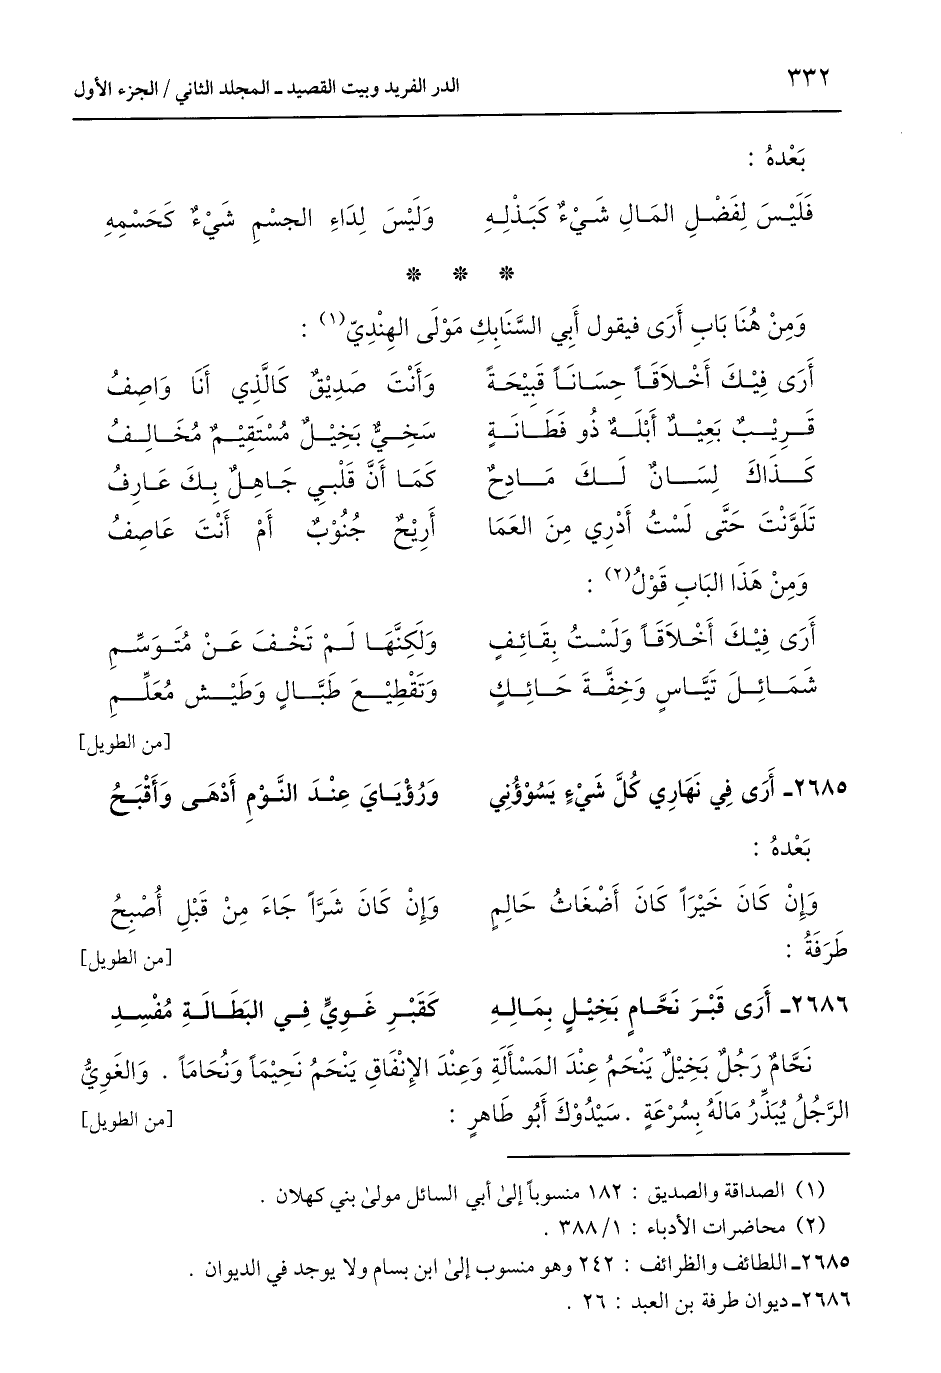 ٣٣٢
الدر الفريد وبيت القصيد ـ المجلد الثاني / الجزء الأول
بَعْدهُ :
فَلَيْسَ لِفَضْلِ المَالِ شَيْءٌ كَبَذْلِهِ وَلَيْسَ لِدَاءِ الجسْمِ شَيْءٌ كَحَسْمِهِ
* * *
وَمِنْ هُنَا بَابِ أَرَى فيقول أَبي السَّنَابِكِ مَوْلَى الهِنْدِيّ(١) :
أَرَى فِيْكَ أَخْلاَقاً حِسَانَاً قَبِيْحَةً وَأَنْتَ صَدِيْقٌ كَالَّذِي أَنَا وَاصِفُ
قَرِيْبٌ بَعِيْدٌ أَبْلَهٌ ذُو فَطَانَةٍ سَخِيٌّ بَخِيْلٌ مُسْتَقِيْمٌ مُخَالِفُ
كَذَاكَ لِسَانٌ لَكَ مَادِحٌ كَمَا أَنَّ قَلْبِي جَاهِلٌ بِكَ عَارِفُ
تَلَوَّنْتَ حَتَّى لَسْتُ أَدْرِي مِنَ العَمَا أَرِيْحٌ جُنُوْبٌ أَمْ أَنْتَ عَاصِفُ
وَمِنْ هَذَا البَابِ قَوْلُ(٢) :
أَرَى فِيْكَ أَخْلاَقاً وَلَسْتُ بِقَائِفٍ وَلَكِنَّهَا لَمْ تَخْفَ عَنْ مُتَوَسِّمِ
شَمَائِلَ تَيَّاسٍ وَخِفَّةَ حَائِكٍ وَتَقْطِيْعَ طَبَّالٍ وَطَيْشَ مُعَلِّمِ
[من الطويل]
٢٦٨٥ـ أَرَى فِي نَهَارِي كُلَّ شَيْءٍ يَسُوْؤُنِي وَرُؤْيَايَ عِنْدَ النَّوْمِ أَدْهَى وَأَقْبَحُ
بَعْدهُ :
وَإِنْ كَانَ خَيْرَاً كَانَ أَضْغَاثُ حَالِمٍ وَإِنْ كَانَ شَرَّاً جَاءَ مِنْ قَبْلِ أُصْبِحُ
طَرَفَةُ : [من الطويل]
٢٦٨٦ـ أَرَى قَبْرَ نَحَّامٍ بَخِيْلٍ بِمَالِهِ كَقَبْرِ غَوِيٍّ فِي البَطَالَةِ مُفْسِدِ
نَحَّامٌ رَجُلٌ بَخِيْلٌ يَنْحَمُ عِنْدَ المَسْأَلَةِ وَعِنْدَ الإِنْفَاقِ يَنْحَمُ نَحِيْمَاً وَنُحَامَاً . وَالغَوِيُّ
الرَّجُلُ يُبَذِّرُ مَالَهُ بِسُرْعَةٍ . سَيْدُوْكَ أَبُو طَاهِرٍ : [من الطويل]
(١) الصداقة والصديق : ١٨٢ منسوباً إلىٰ أبي السائل مولىٰ بني كهلان .
(٢) محاضرات الأدباء : ٣٨٨/١ .
٢٦٨٥ـ اللطائف والظرائف : ٢٤٢ وهو منسوب إلىٰ ابن بسام ولا يوجد في الديوان .
٢٦٨٦ـ ديوان طرفة بن العبد : ٢٦ .